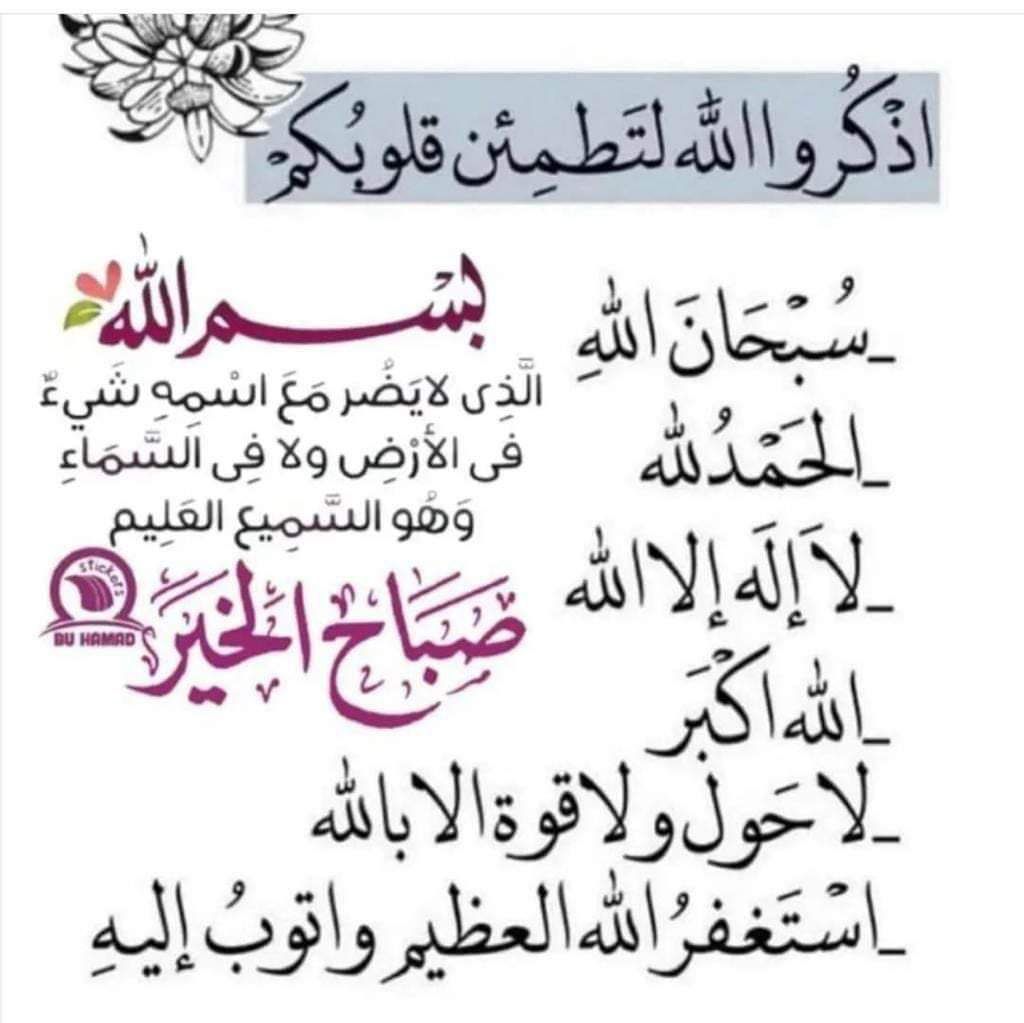 اذْكُروا الله لتَطمِئن قلوبُكمْ
_سُبْحَانَ اللهِ
_الحَمْدُ لله
_لاَ إلَه إلا الله
_الله اكْبَر
_لا حَول ولا قوة الا بالله
_اسْتَغفرُ الله العظيم واتوبُ إليهِ
بسْم الله
الَّذِى لايَضُر مَعَ اسْمِهِ شَيءٌ
فى الأَرْضِ ولا فِى السَّمَاءِ
وَهُو السَّمِيع العَلِيم
صَبَاح الخَيَر
stickers
BU HAMAD